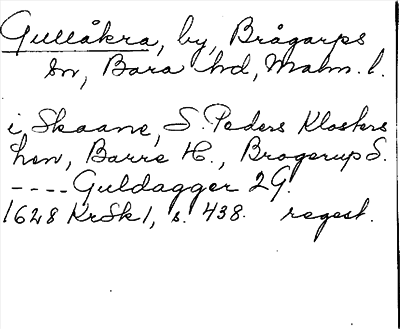 Gullåkra, by, Brågarps
sn, Bara hd, Malm. l.
i Skaane, S. Peders Klosters
hen, Barre H., Brogerup S.
---- Guldagger 2 G.
1628 KrSk 1, s. 438. regest.